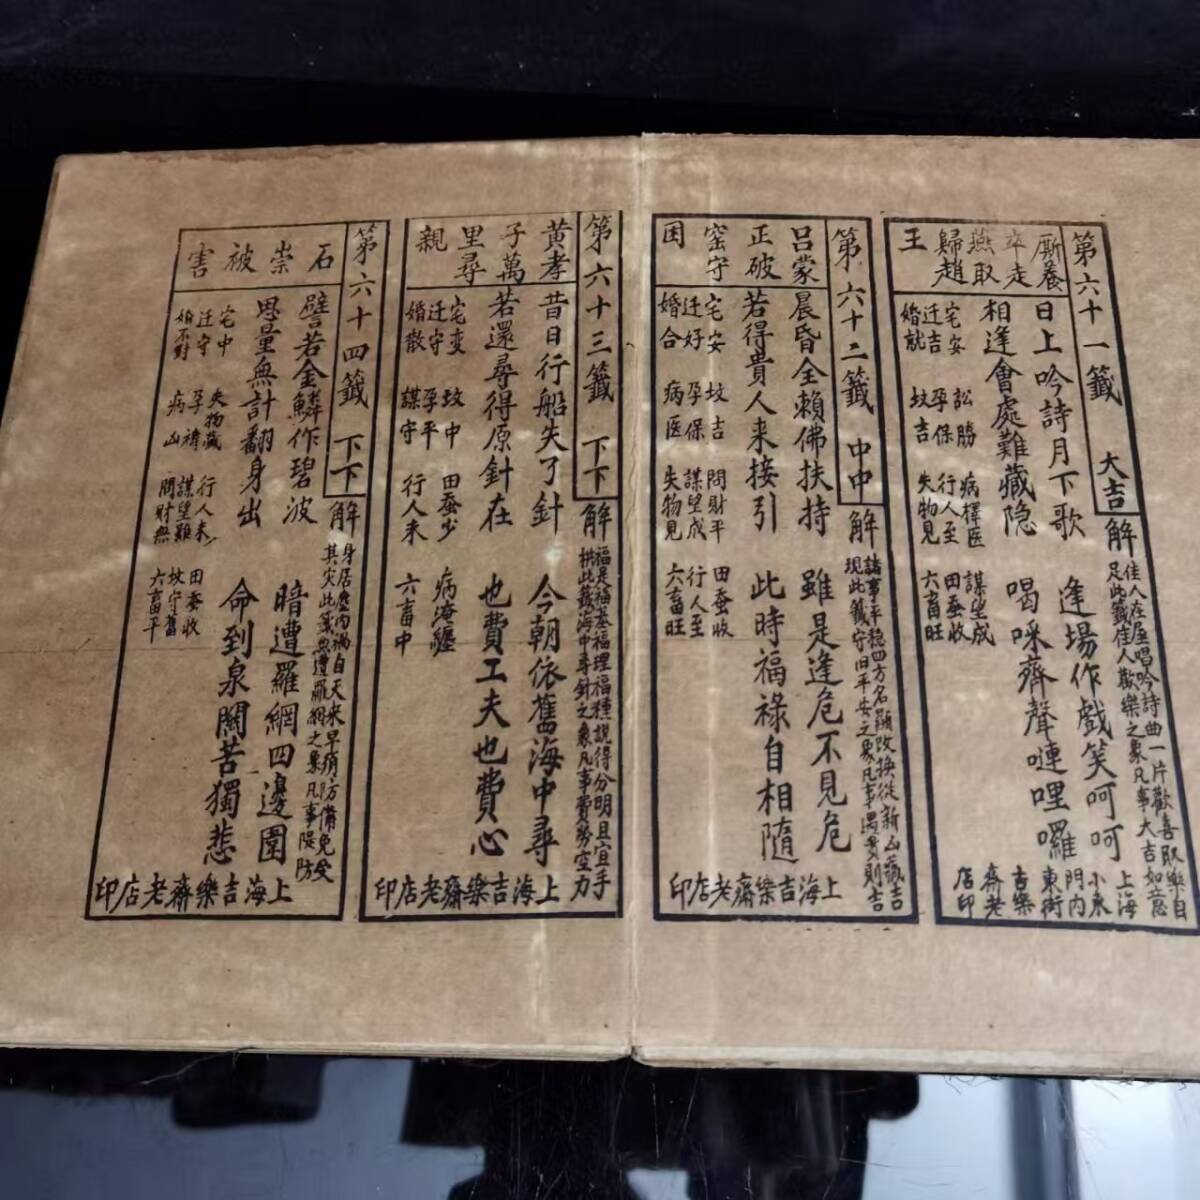 第六十一籤 大吉
廝養
卒走
燕取
歸趙
王
日上吟詩月下歌 逢場作戲笑呵呵
相逢會處難藏隐 喝咪齊聲嗹哩囉
解
佳人在座唱吟詩曲一片歡喜取樂自
足此籤佳人歡樂之象凡事大吉如意
宅安 訟勝 病擇医 謀望成
迁吉 孕保 行人至 田蚕收
婚就 坟吉 失物見 六畜旺
上海
小東
門內
東街
吉樂
齋老
店印
第六十二籤 中中
呂蒙
正破
窑守
困
晨昏全賴佛扶持 雖是逢危不見危
若得貴人来接引 此時福祿自相隨
解
諸事平穏四方名顯改換從新山藏吉
現此籤守旧平安之象凡事遇貴則吉
宅安 坟吉 問財平 田蚕收
迁好 孕保 謀望成 行人至
婚合 病医 失物見 六畜旺
上海吉樂齋老店印
第六十三籤 下下
黄孝
子萬
里尋
親
昔日行船失了針 今朝依舊海中尋
若還尋得原針在 也費工夫也費心
解
福是福基福理福種說得分明且宜手
拱此籤海中尋針之象凡事費勞空力
宅变 坟中 田蚕少 病淹纏
迁守 孕平 行人未 六畜中
婚散 謀守
上海吉樂齋老店印
第六十四籤 下下
石崇被害
譬若金鱗作碧波 暗遭羅網四邊圍
思量無計翻身出 命到泉關苦獨悲
解
身居塵内禍自天来早須防備免受
其灾此籤無遭羅網之象凡事隄防
宅中 失物藏 行人未 田蚕收
迁守 孕禱 謀望艱 坟守舊
婚不對 病凶 問財無 六畜平
上海吉樂齋老店印